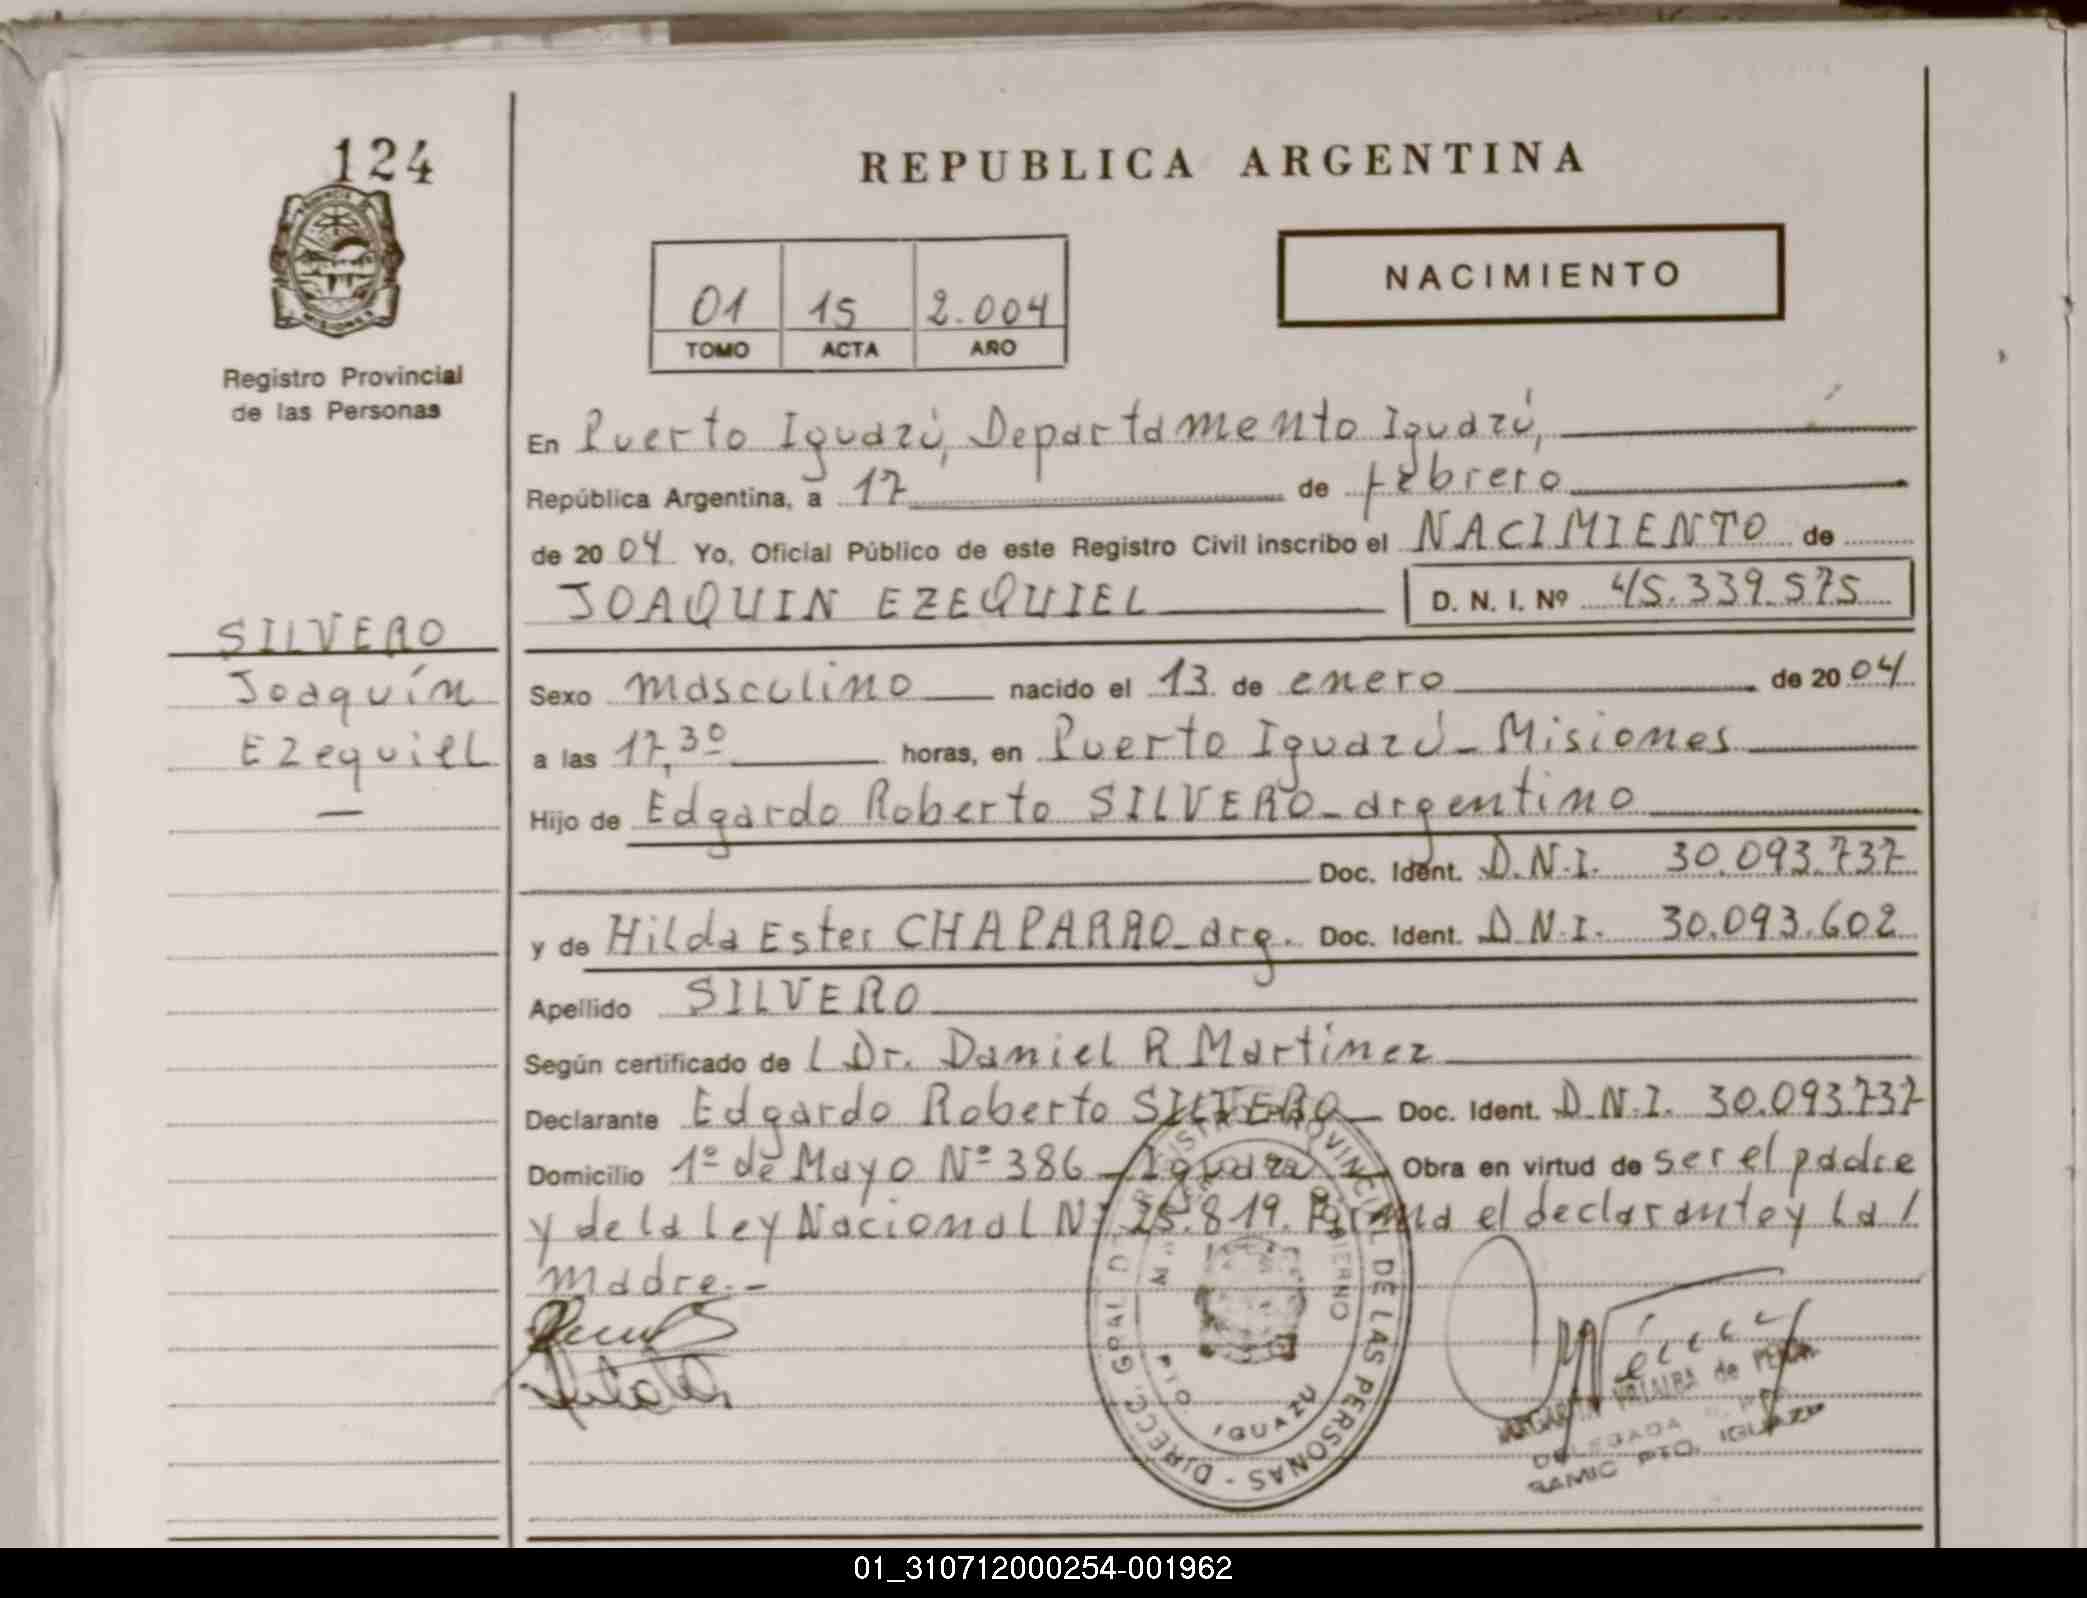 124
REPUBLICA ARGENTINA
NACIMIENTO
01 15 2.004
TOMO ACTA AÑO
PROVINCIA DE MISIONES
Registro Provincial
de las Personas
En Puerto Iguazú, Departamento Iguazú,
República Argentina, a 17 de febrero
de 20 04 Yo, Oficial Público de este Registro Civil inscribo el NACIMIENTO de
JOAQUIN EZEQUIEL D. N. I. Nº 45.339.575
SILVERO
Joaquín
Ezequiel
—
Sexo masculino nacido el 13 de enero de 20 04
a las 17,30 horas, en Puerto Iguazú - Misiones
Hijo de Edgardo Roberto SILVERO - argentino
Doc. Ident. D.N.I. 30.093.737
y de Hilda Ester CHAPARRO - arg. Doc. Ident. D.N.I. 30.093.602
Apellido SILVERO
Según certificado de l Dr. Daniel R Martinez
Declarante Edgardo Roberto SILVERO Doc. Ident. D.N.I. 30.093.737
Domicilio 1º de Mayo Nº 386 - Iguazú Obra en virtud de ser el padre
y de la Ley Nacional Nº 25.819. Firma el declarante y la /
madre.-
DIRECC. GRAL DE REGISTRO PROVINCIAL DE LAS PERSONAS -
GOBIERNO
PTO. IGUAZU
VILLALBA de
DELEGADA
SAMIC PTO. IGUAZU
01_310712000254-001962